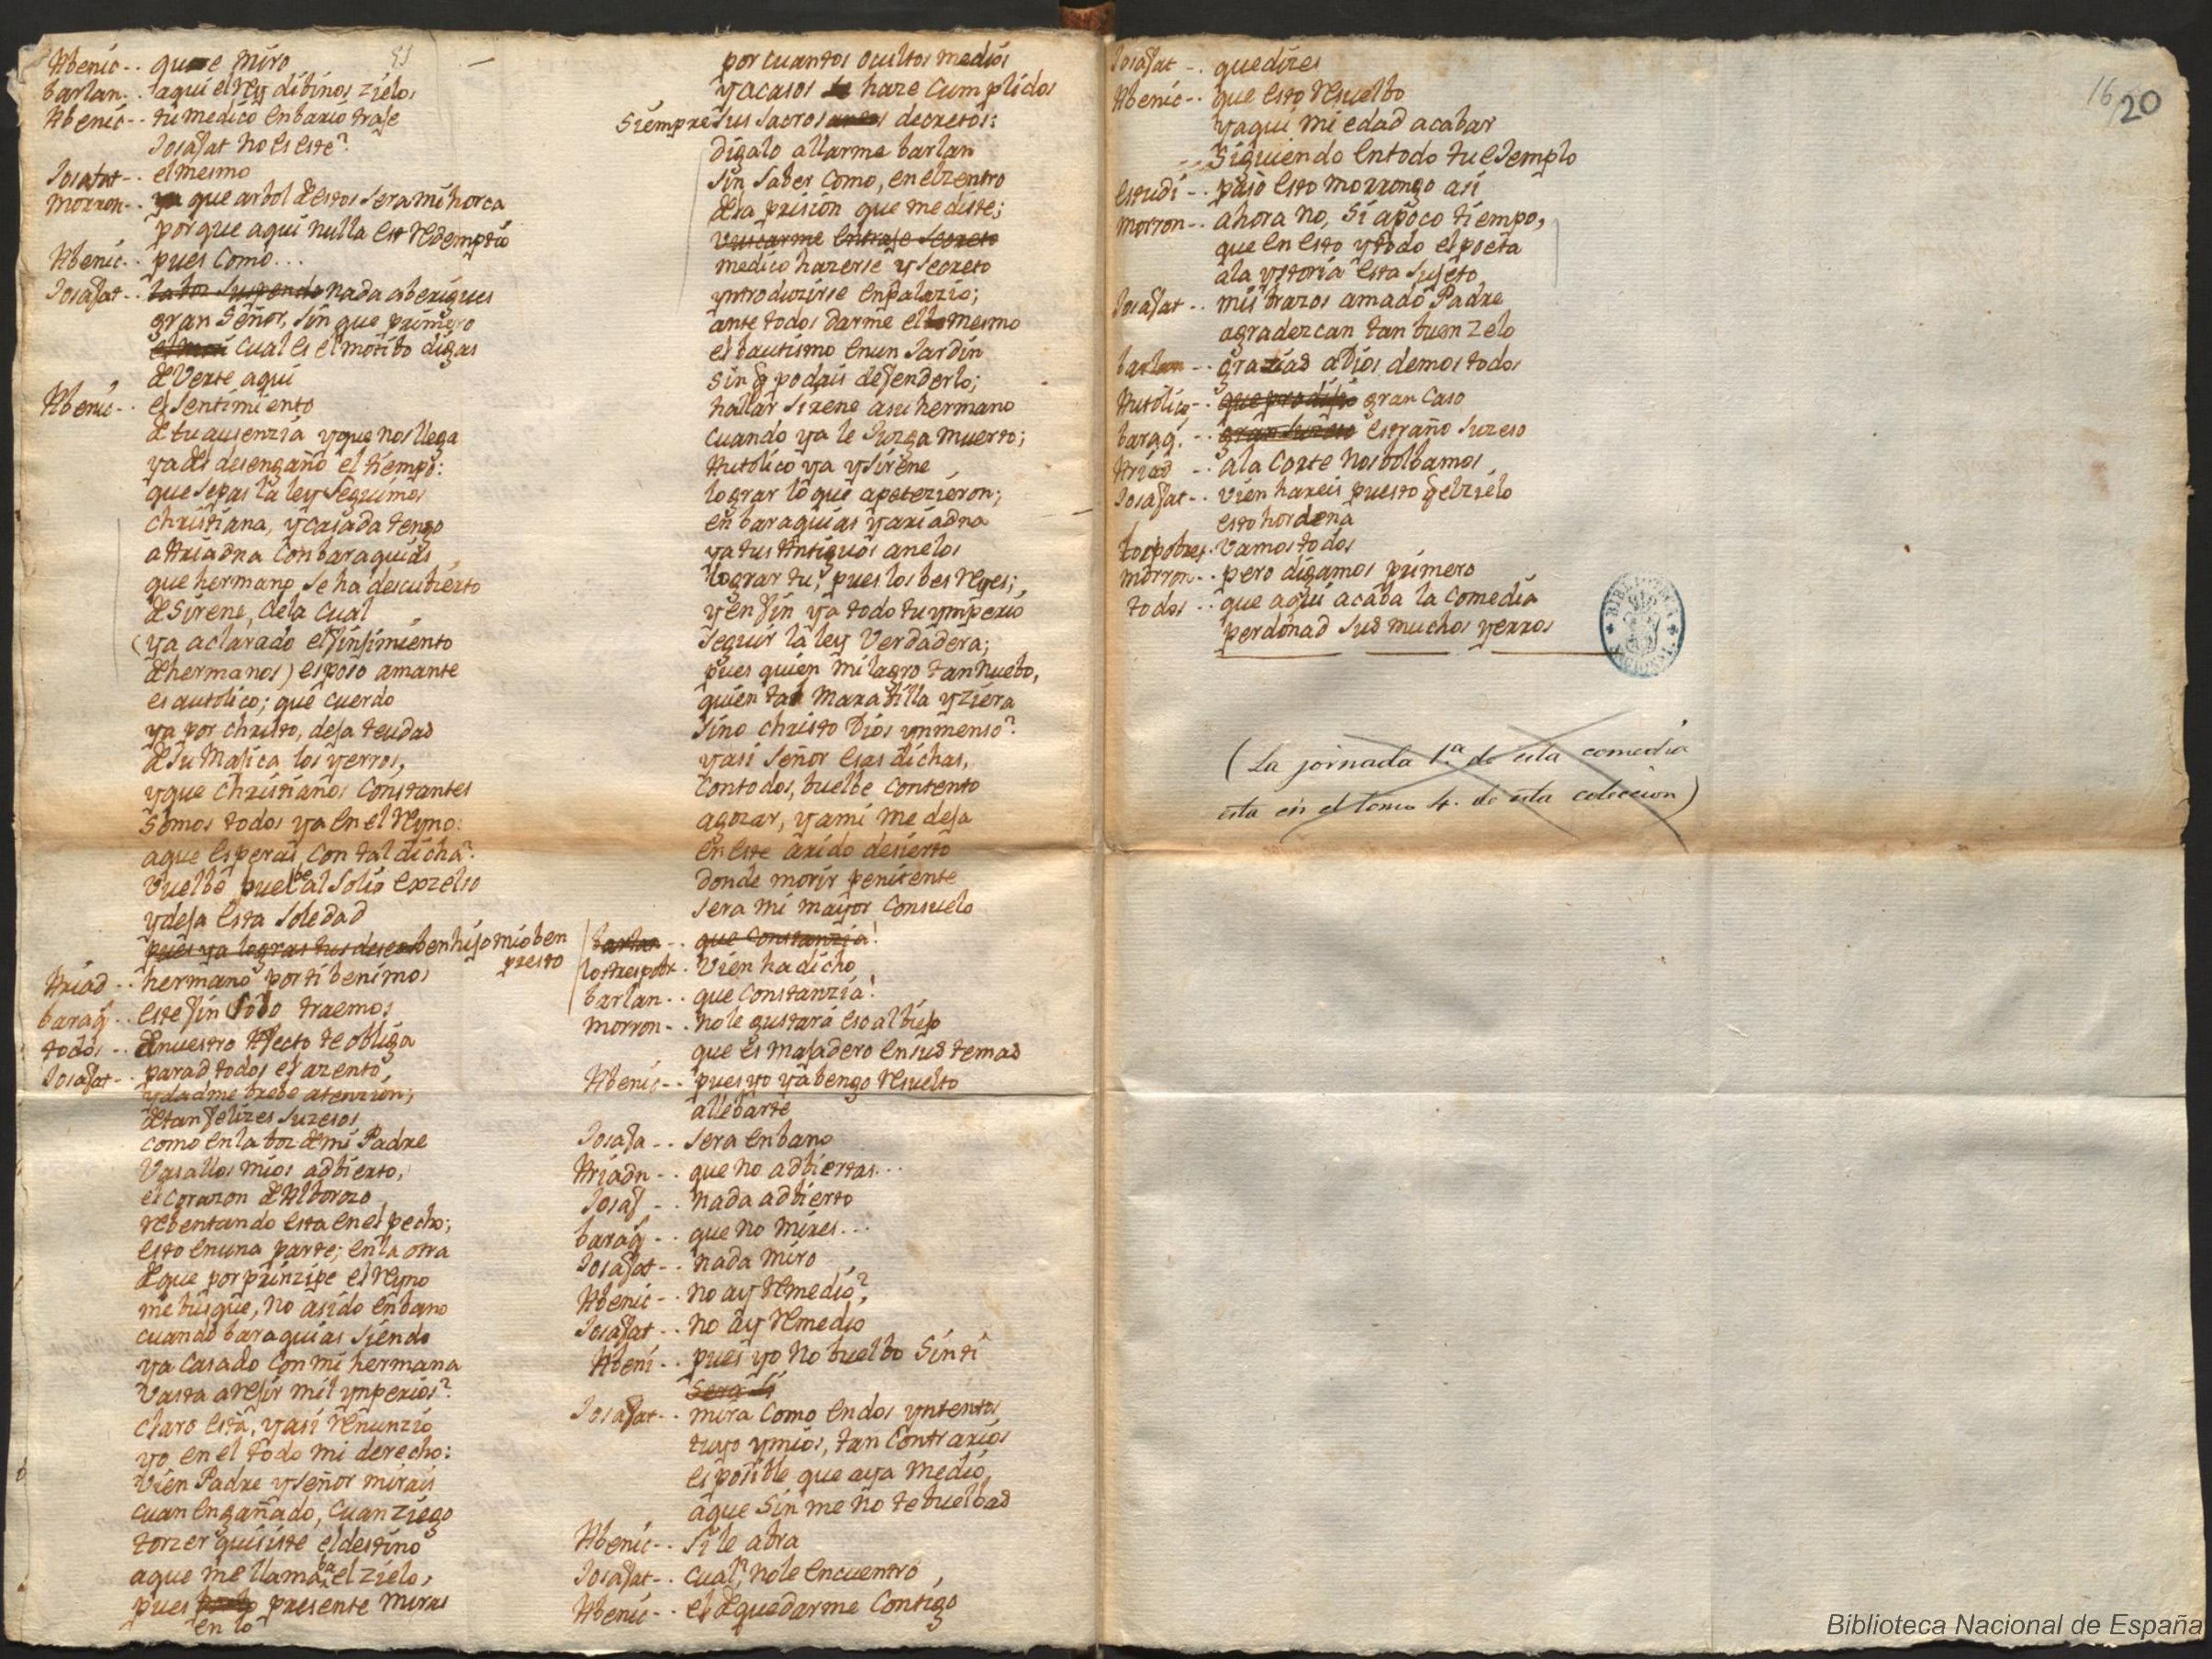 Abenic-. que miro
barlan-. aqui el Rey dibinos zielos
Abenic-. tu medico en bario traje
Josafat no es este?
Josafat-. el mesmo
morron-. ya que arbol de estos sera mi horca
porque aqui nulla est redemptio
Abenic-. pues como...
Josafat-. la boz suspende nada aberigues
gran Señor, sin que primero
cual es el motibo digas
de Verte aqui
Abenic-. el sentimiento
de tu ausenzia y que nos llega
ya del desengaño el tiempo:
que sepas la ley seguimos
christiana, y casada tengo
a Ariadna con baraquias
que hermano se ha descubierto
de Sirene, de la cual
(ya aclarado el finjimiento
de hermanos) esposo amante
es autolico; que cuerdo
ya por christo, deja teudas
de su Majica los yerros,
y que christianos constantes
somos todos ya en el Reyno:
a que esperas, con tal dicha?
Vuelbe pues al solio exzelso
y deja esta soledad
pues ya logras tus deseos ben hijo mio ben
presto
Ariad-. hermano por ti benimos
baraq-. este fin solo traemos
todos-. de nuestro Afecto te obliga
Josafat-. parad todos el azento,
y dadme brebe atenzion;
de tan felizes suzesos
como en la boz de mi Padre
Vasallos mios adbierto,
el corazon de Alborozo
rebentando esta en el pecho;
esto en una parte; en la otra
de que por prinzipe el Reyno
me busque, no a sido en bano
cuando baraquias siendo
ya casado con mi hermana
Vasta a rejir mil ynperios?
claro está, y asi renunzio
yo en el todo mi derecho:
vien Padre y señor mirais
cuan engañado, cuan ziego
torzer quisiste el destino
a que me llamaba el zielo,
pues presente miras
en lo
51
por cuantos ocultos medios
y acasos se haze cumplidos
siempre sus sacros decretos:
digalo allarme barlan
sin saber como, en el zentro
de la prision que me diste;
Vuscarme en traje secreto
medico hazerse y secreto
yntroduzirse en palazio;
ante todos darme el mesmo
el bautismo en un Jardin
sin q podais defenderlo;
hallar Sirene a su hermano
cuando ya le Juzga muerto;
Autolico ya y Sirene
lograr lo que apetezieron;
en baraquias y ariadna
ya tus Antiguos anelos
lograr tu, pues los bes Reyes;
y en fin ya todo tu ymperio
seguir la ley Verdadera;
pues quien milagro tan nuebo,
quien tal marabilla yziera
sino christo Dios ynmenso?
y asi señor esas dichas,
con todos, buelbe contento
a gozar, y a mi me deja
en este arido desierto
donde morir penitente
sera mi mayor consuelo
barlan-. que constanzia!
los tres pobr. Vien ha dicho
barlan-. que constanzia!
morron-. no le gustará eso al biejo
que es majadero en sus temas
Abenic-. pues yo ya bengo resuelto
a llebarte
Josafa-. sera en bano
Ariadn-. que no adbiertas...
Josaf-. nada adbierto
baraq-. que no mires...
Josafat-. nada miro
Abenic-. no ay remedio?
Josafat-. no ay remedio
Abeni-. pues yo no buelbo sin ti
sera si
Josafat-. mira como en dos yntentos
tuyo y mios, tan contrarios
es posible que aya medio,
a que sin me no te buelbas
Abenic-. si le abra
Josafat-. cual? no le encuentro
Abenic-. el de quedarme contigo
16
20
Josafat-. que dizes
Abenic-. que esto resuelbo
y aqui mi edad acabar
siguiendo en todo tu ejemplo
estudi-. pasó esto morrongo asi
morron-. ahora no, si a poco tiempo,
que en esto y todo el poeta
a la ystoria esta sujeto
Josafat-. mis brazos amado Padre
agradezcan tan buen zelo
barlan-. grazias a Dios demos todos
Autolico-. que prodijio gran caso
baraq.-. gran suzeso estraño suzeso
Ariad-. a la corte nos bolbamos
Josafat-. vien hareis puesto q el zielo
esto hordena
los pobres. Vamos todos
morron-. pero digamos primero
todos-. que aqui acaba la comedia
perdonad sus muchos yerros
BIBLIOTECA NACIONAL
(La jornada 1.ª de esta comedia
esta en el tomo 4. de esta coleccion)
Biblioteca Nacional de España